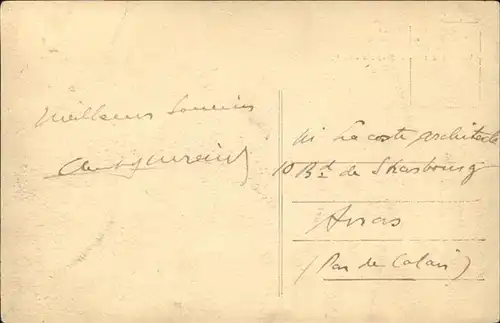 Meilleurs Souvenirs
Mr Lacoste architecte
10 Bd de Strasbourg
Arras
(Pas de Calais)